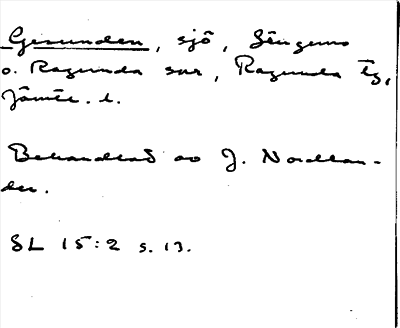 Gesunden, sjö,
o. Ragunda snr, Ragunda tg,
Jämtl. l.
Behandlad av J. Nordlan-
der.
SL 15:2 s. 13.